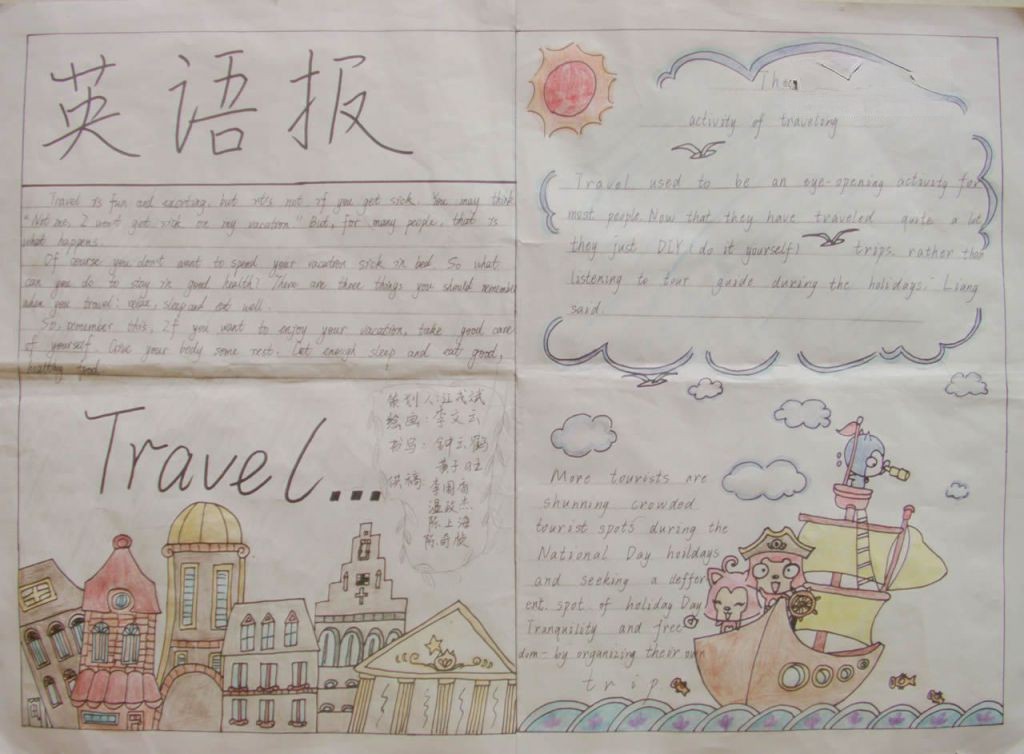 英语报
Travel is fun and exciting, but it's not if you get sick. You may think
"Not me, I won't get sick on my vacation." But, for many people, that is
what happens.
Of course you don't want to spend your vacation sick in bed. So what
can you do to stay in good health? There are three things you should remember
when you travel: relax, sleep and eat well.
So, remember this, If you want to enjoy your vacation, take good care
of yourself. Give your body some rest. Get enough sleep and eat good,
healthy food.
Travel...
策划人:
绘画:李文云
书写:钟云鹤
黄子旺
供稿:李国香
温政杰
陈上海
陈奇俊
The
activity of traveling
Travel used to be an eye-opening activity for
most people. Now that they have traveled quite a lot
they just DIY (do it yourself) trips, rather than
listening to tour guide during the holidays." Liang
said.
More tourists are
shunning crowded
tourist spots during the
National Day hoildays
and seeking a deffer
ent. spot of holiday Day
Tranquility and free
dom - by organizing their own
trip